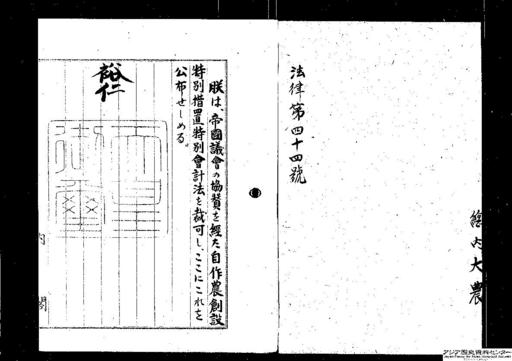 法律第四十四號
朕は、帝國議會の協賛を經た自作農創設
特別措置特別會計法を裁可し、ここにこれを
公布せしめる。
裕仁
内
閣
大農
アジア歴史資料センター